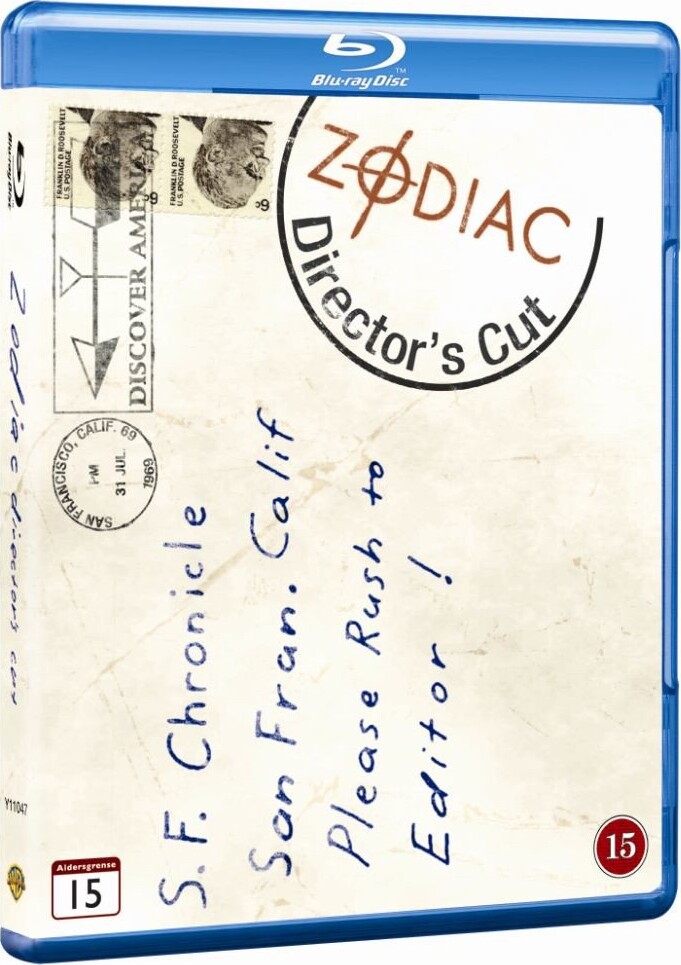 Blu-ray Disc™
Blu-ray Disc
Zodiac director's cut
Y11047
FRANKLIN D. ROOSEVELT
U.S. POSTAGE
6¢
FRANKLIN D. ROOSEVELT
U.S. POSTAGE
6¢
DISCOVER AMERICA
SAN FRANCISCO, CALIF. 69
PM
31 JUL.
1969
ZODIAC
Director's Cut
S.F. Chronicle
San Fran. Calif
Please Rush to
Editor!
Aldersgrense
15
15